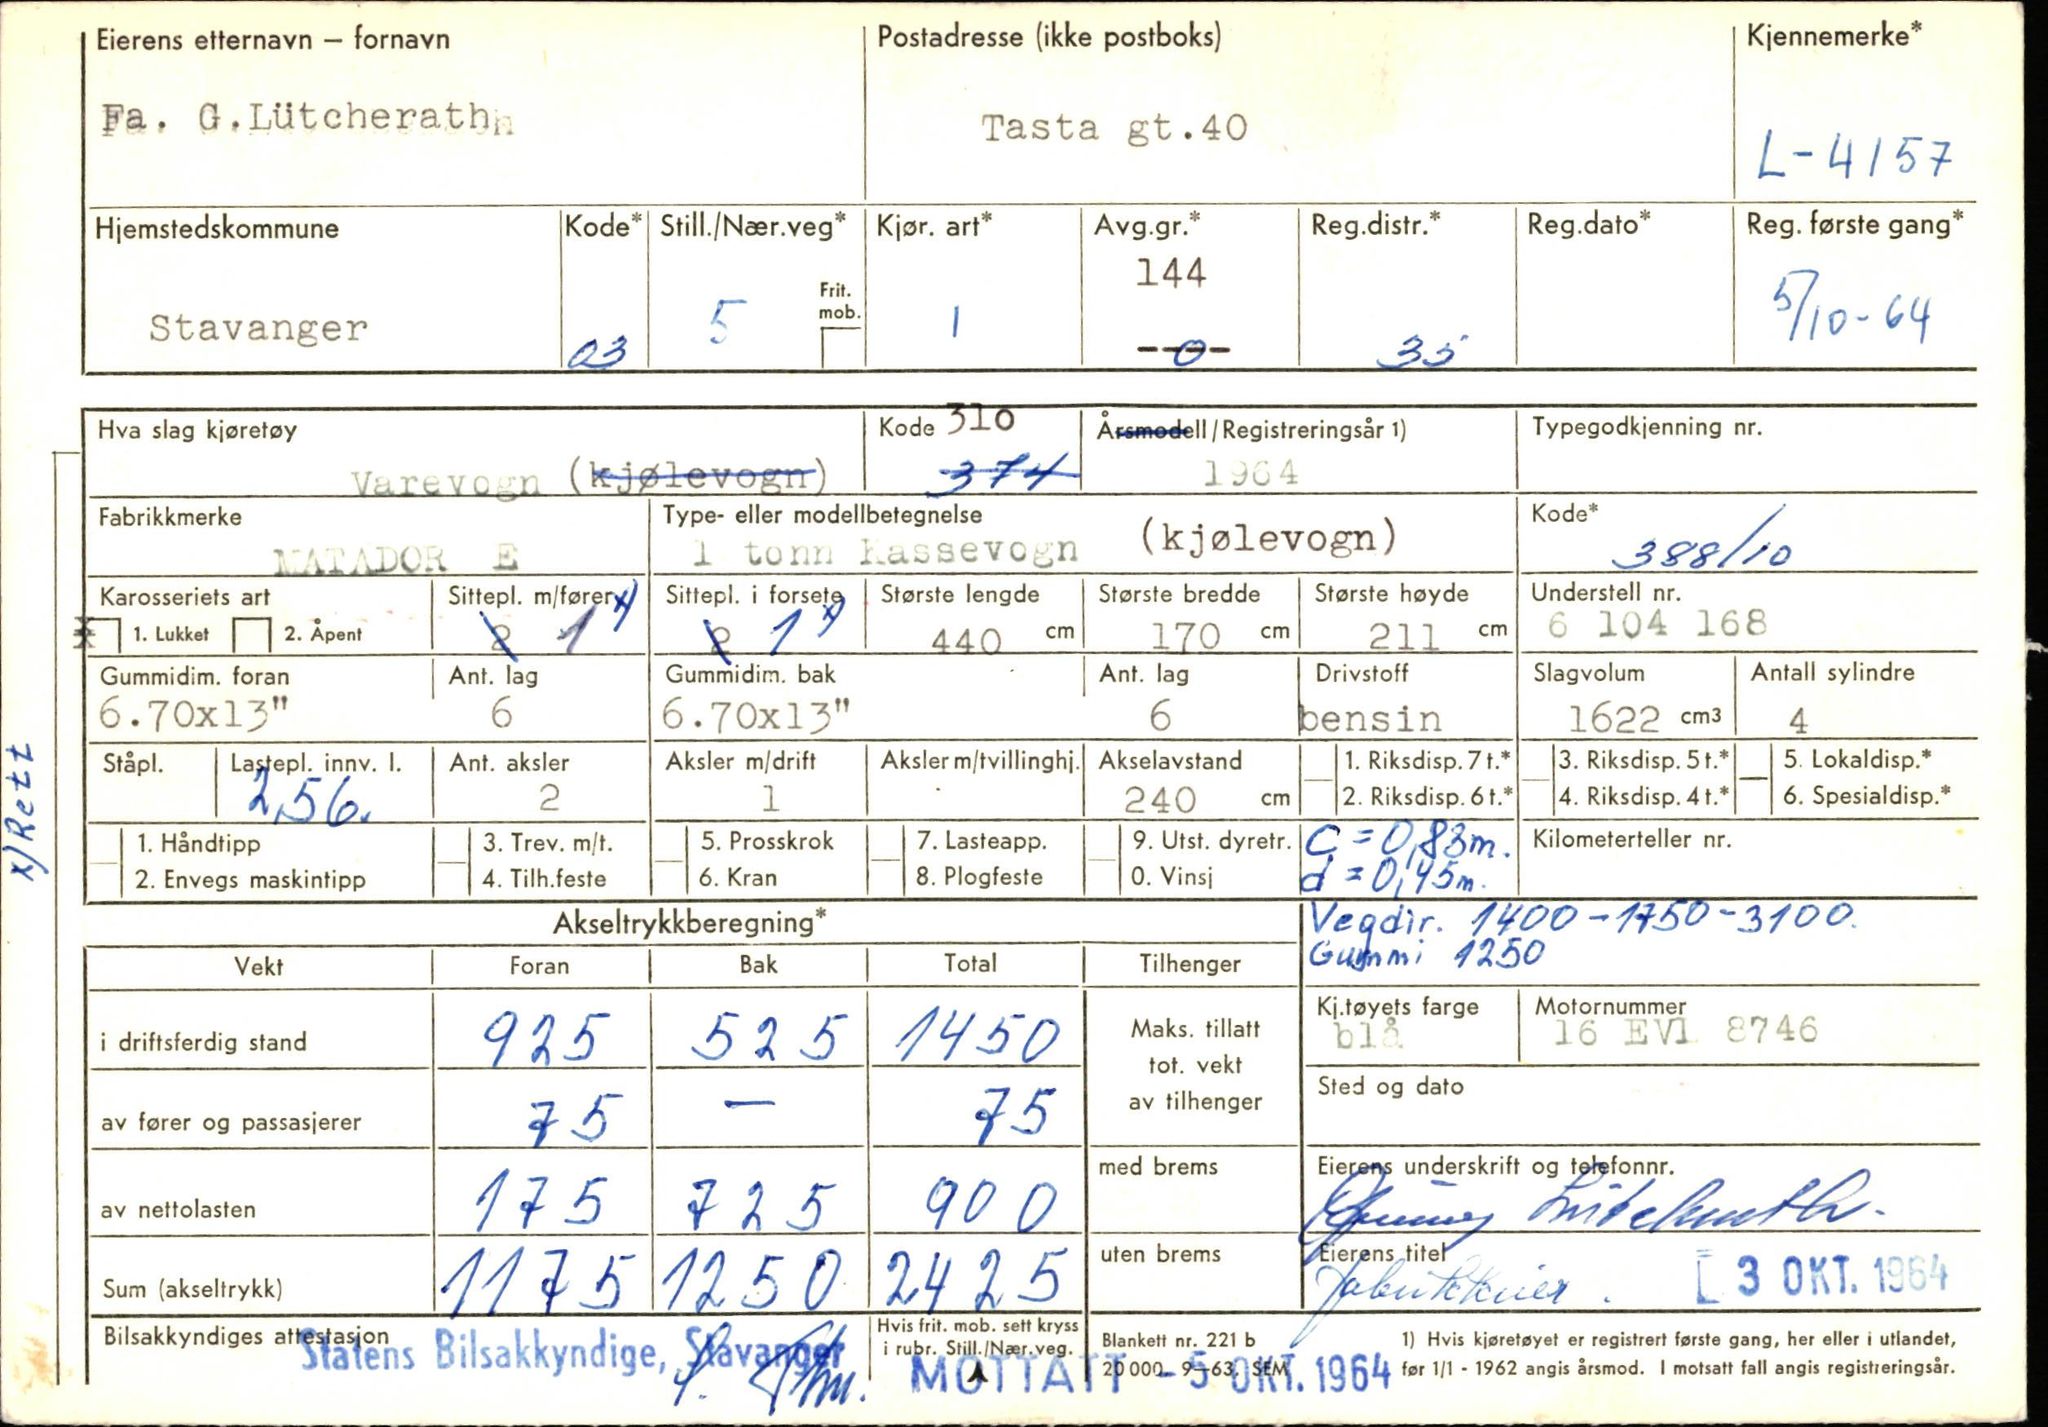 Eierens etternavn – fornavn Postadresse (ikke postboks) Kjennemerke*
Fa. G.Lütcherath Tasta gt.40 L-4157
Hjemstedskommune Kode* Still./Nær.veg* Kjør. art* Avg.gr.* Reg.distr.* Reg.dato* Reg. første gang*
144
Frit. mob.
Stavanger 03 5 1 ---- 0 35 5/10-64
Hva slag kjøretøy Kode 310 Årsmodell/Registreringsår 1) Typegodkjenning nr.
Varevogn (kjølevogn) 374 1964
Fabrikkmerke Type- eller modellbetegnelse Kode*
MATADOR E 1 tonn Kassevogn (kjølevogn) 388/10
Karosseriets art Sittepl. m/fører Sittepl. i forsete Største lengde Største bredde Største høyde Understell nr.
X 1. Lukket 2. Åpent 2 1 x) 2 1 x) 440 cm 170 cm 211 cm 6 104 168
Gummidim. foran Ant. lag Gummidim. bak Ant. lag Drivstoff Slagvolum Antall sylindre
6.70x13" 6 6.70x13" 6 bensin 1622 cm3 4
Ståpl. Lastepl. innv. l. Ant. aksler Aksler m/drift Aksler m/tvillinghj. Akselavstand 1. Riksdisp. 7 t.* 3. Riksdisp. 5 t.* 5. Lokaldisp.*
2,56. 2 1 240 cm 2. Riksdisp. 6 t.* 4. Riksdisp. 4 t.* 6. Spesialdisp.*
x) Rett
1. Håndtipp 3. Trev. m/t. 5. Prosskrok 7. Lasteapp. 9. Utst. dyretr. C = 0,83m. Kilometerteller nr.
2. Envegs maskintipp 4. Tilh.feste 6. Kran 8. Plogfeste 0. Vinsj d = 0,45m.
Akseltrykkberegning* Vegdir. 1400-1750-3100.
Gummi 1250
Vekt Foran Bak Total Tilhenger
Kj.tøyets farge Motornummer
i driftsferdig stand 925 525 1450 Maks. tillatt blå 16 EV1 8746
tot. vekt
av tilhenger
Sted og dato
av fører og passasjerer 75 — 75
med brems Eierens underskrift og telefonnr.
av nettolasten 175 725 900
uten brems Eierens titel
Sum (akseltrykk) 1175 1250 2425 3 OKT. 1964
Bilsakkyndiges attestasjon Hvis frit. mob. sett kryss
i rubr. Still./Nær.veg.
Statens Bilsakkyndige, Stavanger
MOTTATT - 5 OKT. 1964
Blankett nr. 221 b
20 000 9–63. SEM
1) Hvis kjøretøyet er registrert første gang, her eller i utlandet,
før 1/1 - 1962 angis årsmod. I motsatt fall angis registreringsår.